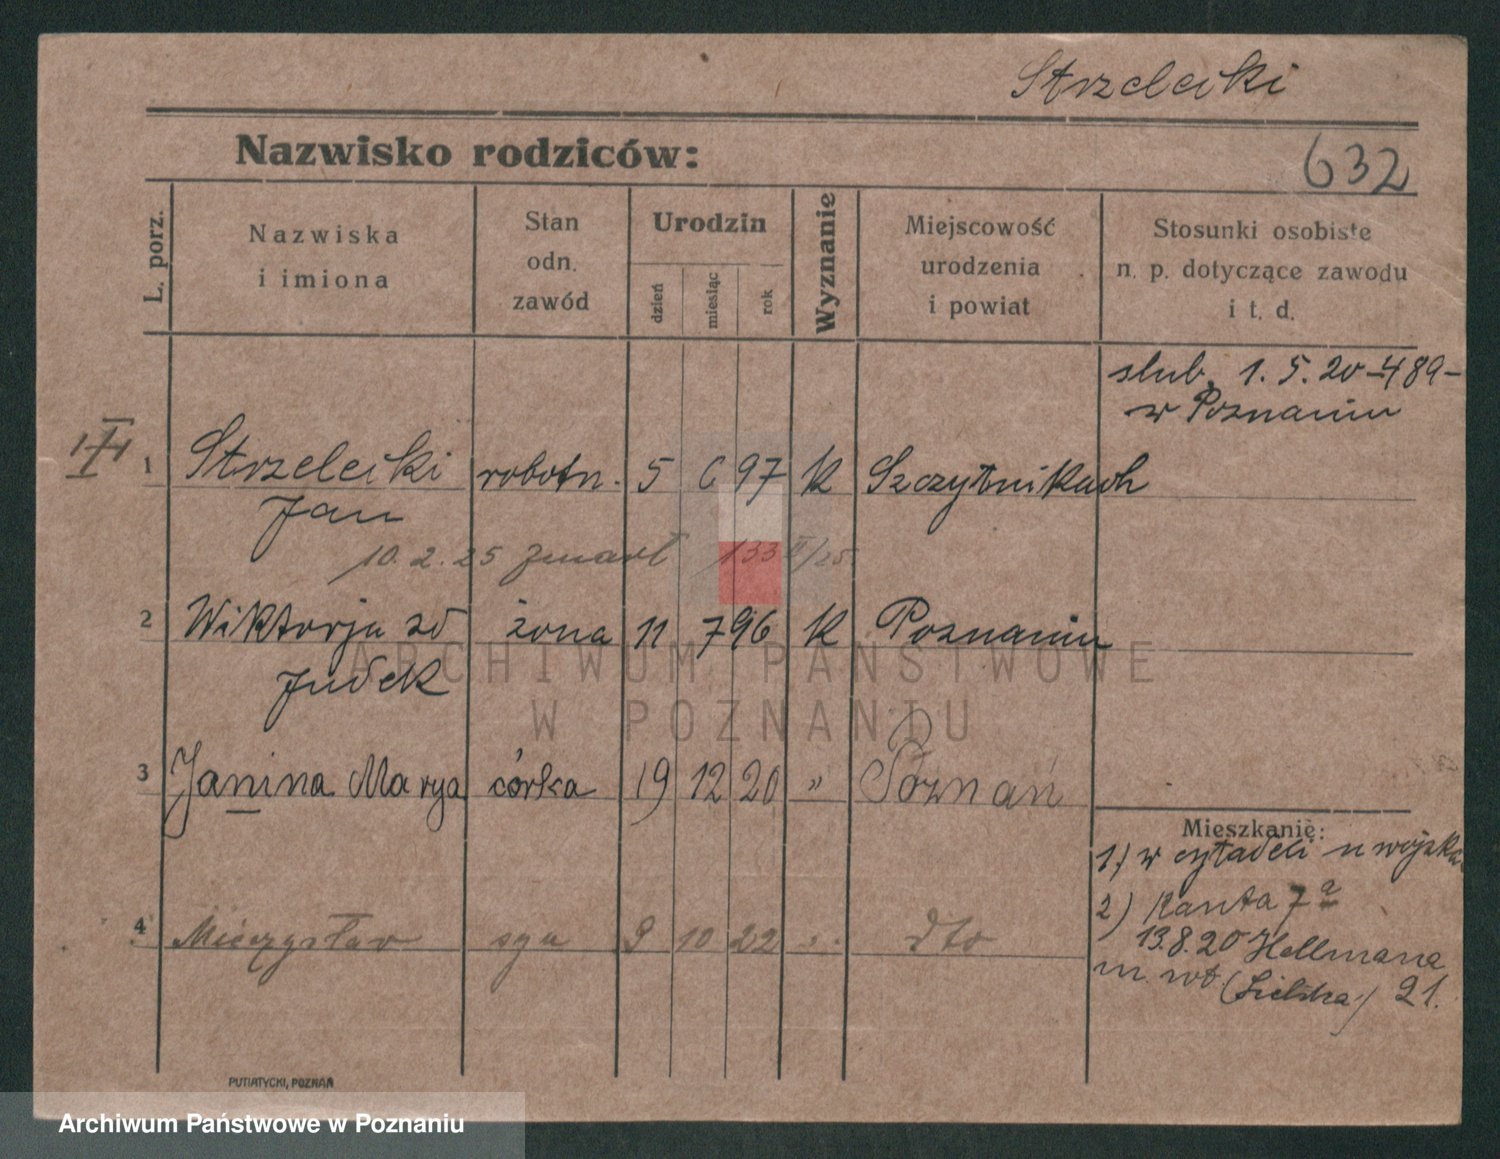 Strzelecki
Nazwisko rodziców:
632
L. porz.
Nazwiska
i imiona
Stan
odn.
zawód
Urodzin
dzień
miesiąc
rok
Wyznanie
Miejscowość
urodzenia
i powiat
Stosunki osobiste
n. p. dotyczące zawodu
i t. d.
ślub. 1. 5. 20 – 489 –
w Poznaniu
1 Strzelecki robotn. 5 6 97 K Szczytnikach
Jan
10. 2. 25 zmarł 133 II/25
2 Wiktorja zd żona 11 7 96 K Poznaniu
Judek
3 Janina Marya córka 19 12 20 " Poznań
Mieszkanie:
1) w cytadeli u wojska
2) Kanta 7a
4 Mieczysław syn 9 10 22 " dto
13.8.20 Hellmana
21.
PUTIATYCKI, POZNAŃ
ARCHIWUM PAŃSTWOWE
W POZNANIU
Archiwum Państwowe w Poznaniu